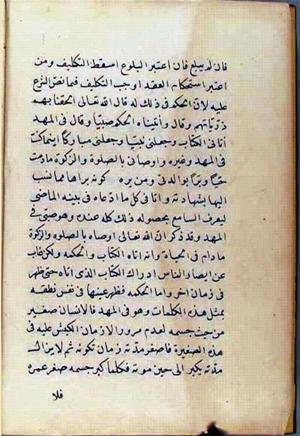 فان لم يبلغ فان اعتبر البلوغ اسقط التكليف ومن
اعتبر استحكام العقد اوجب التكليف فما نص الشرع
عليه لان الحكم في ذلك له قال الله تعالى الحقنا بهم
ذرياتهم وقال وآتيناه الحكم صبيا وقال في المهد
آتاني الكتاب وجعلني نبيا وجعلني مباركا اينما كنت
في المهد وغيره واوصاني بالصلوة والزكوة ما دمت
حيا وبرا بوالدتي ومن بره كونه براها مما نسب
اليها بشهادته واتى في كل ما ادعاه ببنية الماضي
ليعرف السامع بحصوله ذلك كله عنده وهو صبي في
المهد وقد ذكر ان الله تعالى اوصاه بالصلوة والزكوة
ما دام في الحياة وانه اتاه الكتاب والحكمة ولكن غاب
عن ابصار الناس ادراك الكتاب الذي اتاه حتى ظهر
في زمان آخر واما الحكمة فظهر عينها في نفس نطقه
بمثل هذه الكلمات وهو في المهد فالانسان صغير
من حيث جسمه لعدم مرور الازمان الكثير عليه في
هذه الصغيرة فاصغر مدته زمان تكونه ثم لا يزال
مدته يكبر الى حين موته فكلما كبر جسمه صغر عمره
فلا